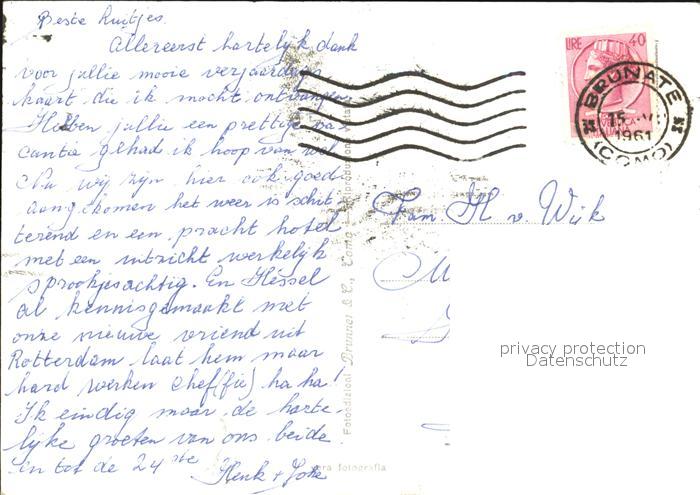 Beste luitjes
Allereerst hartelijk dank
voor jullie mooie verjaardags
kaart die ik mocht ontvangen
Hebben jullie een prettige va-
cantie gehad ik hoop van wel
Nu wij zijn hier ook goed
aangekomen het weer is schit
terend en een pracht hotel
met een uitzicht werkelijk
sprookjesachtig. En Hessel
al kennisgemaakt met
onze nieuwe vriend uit
Rotterdam laat hem maar
hard werken chef(fie) ha ha!
Ik eindig maar de harte-
lijke groeten van ons beide
en tot de 24ste
Henk + Joke
Fam H v. Wijk
LIRE 40
BRUNATE
15
1961
(COMO)
Fotoedizioni Brunner & C., Como
Riproduzione
vera fotografia
privacy protection
Datenschutz